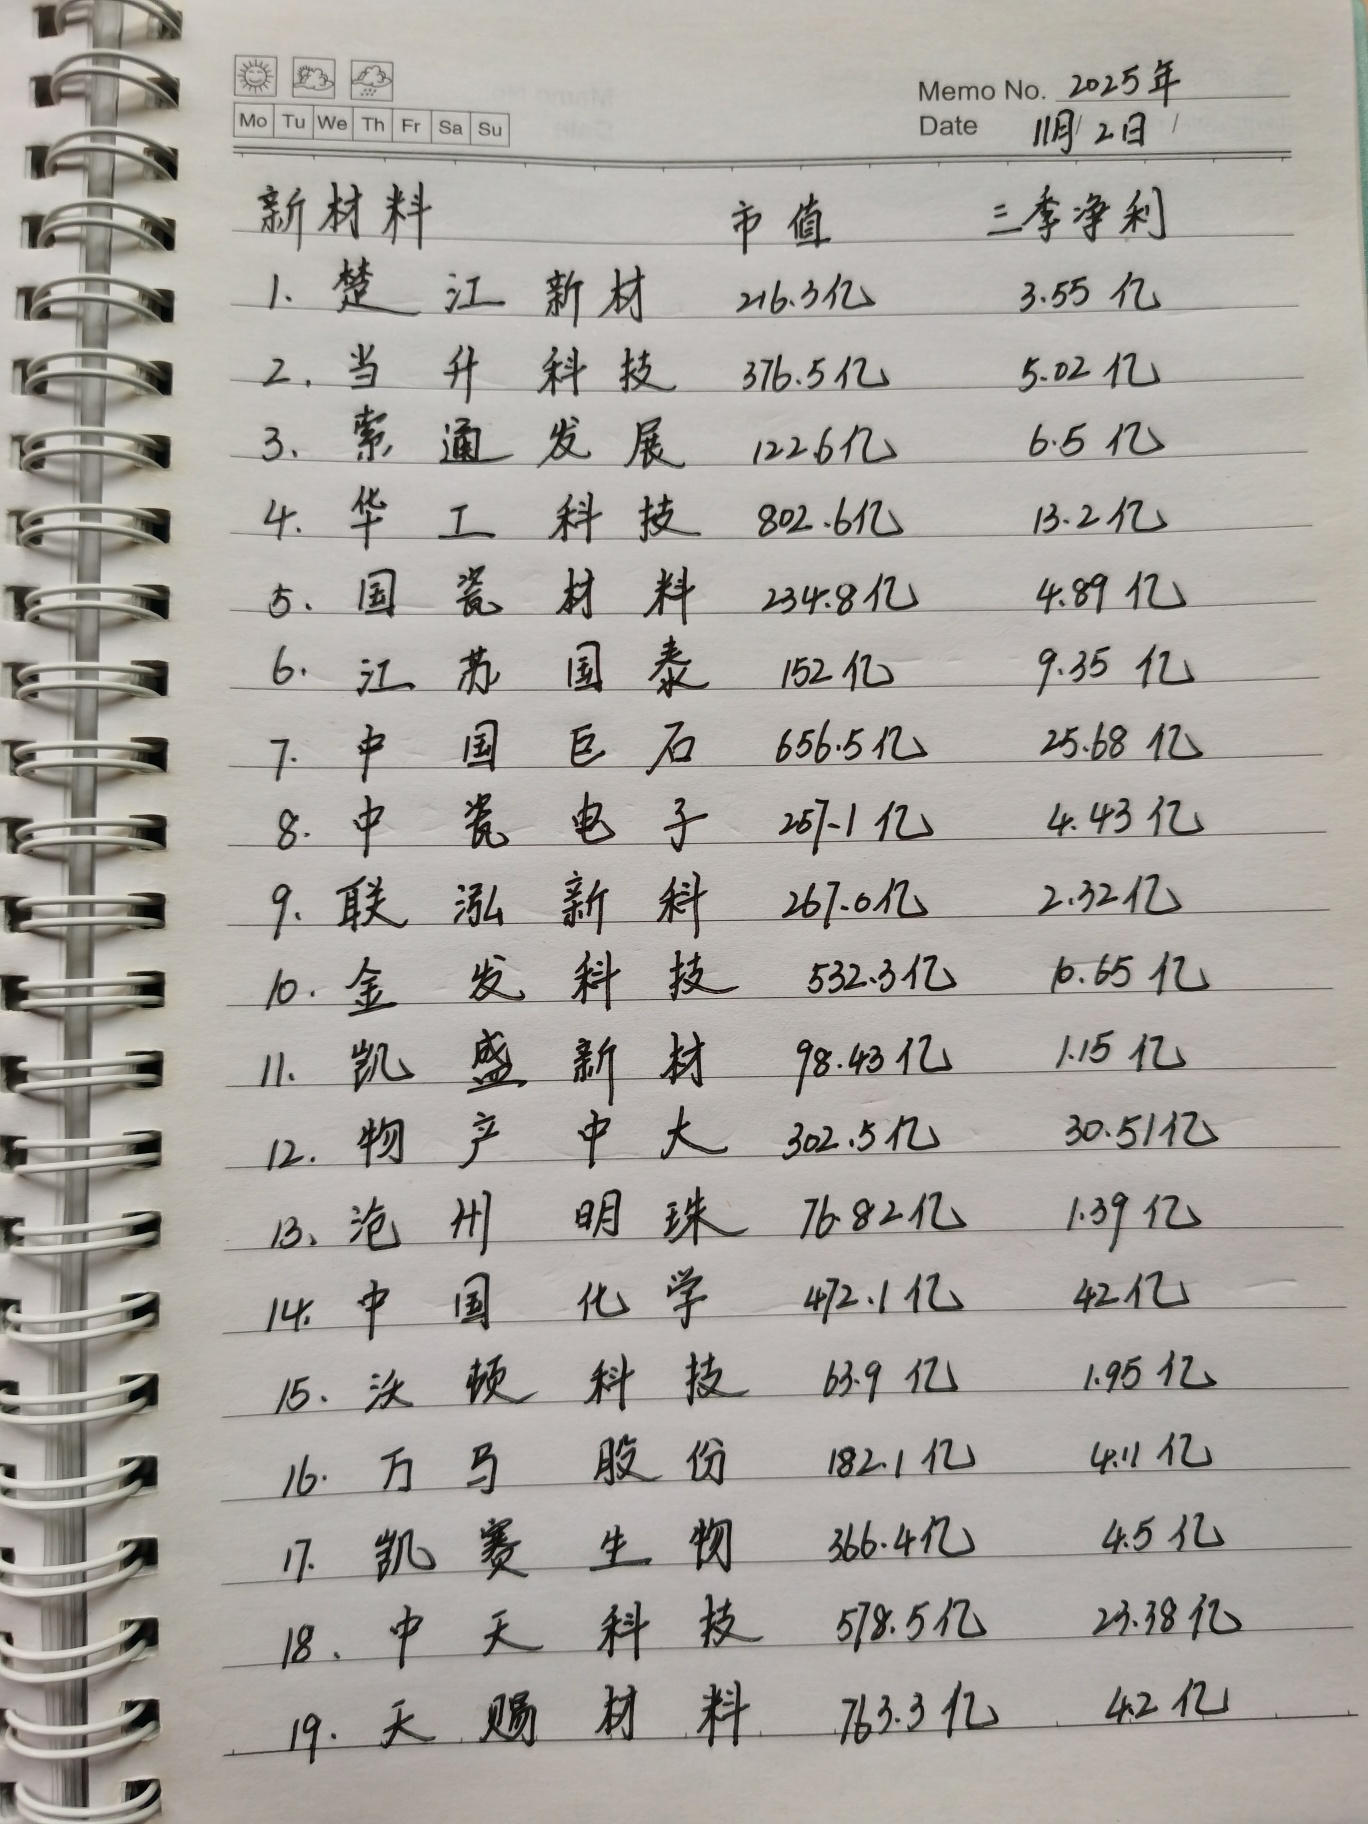 Memo No. 2025年
Mo Tu We Th Fr Sa Su
Date 11月/2日/
新材料 市值 三季净利
1. 楚江新材 216.3亿 3.55亿
2. 当升科技 376.5亿 5.02亿
3. 索通发展 122.6亿 6.5亿
4. 华工科技 802.6亿 13.2亿
5. 国瓷材料 234.8亿 4.89亿
6. 江苏国泰 152亿 9.35亿
7. 中国巨石 656.5亿 25.68亿
8. 中瓷电子 257.1亿 4.43亿
9. 联泓新科 267.0亿 2.32亿
10. 金发科技 532.3亿 10.65亿
11. 凯盛新材 98.43亿 1.15亿
12. 物产中大 302.5亿 30.51亿
13. 沧州明珠 76.82亿 1.39亿
14. 中国化学 472.1亿 42亿
15. 沃顿科技 63.9亿 1.95亿
16. 万马股份 182.1亿 4.11亿
17. 凯赛生物 366.4亿 4.5亿
18. 中天科技 578.5亿 23.38亿
19. 天赐材料 763.3亿 4.2亿